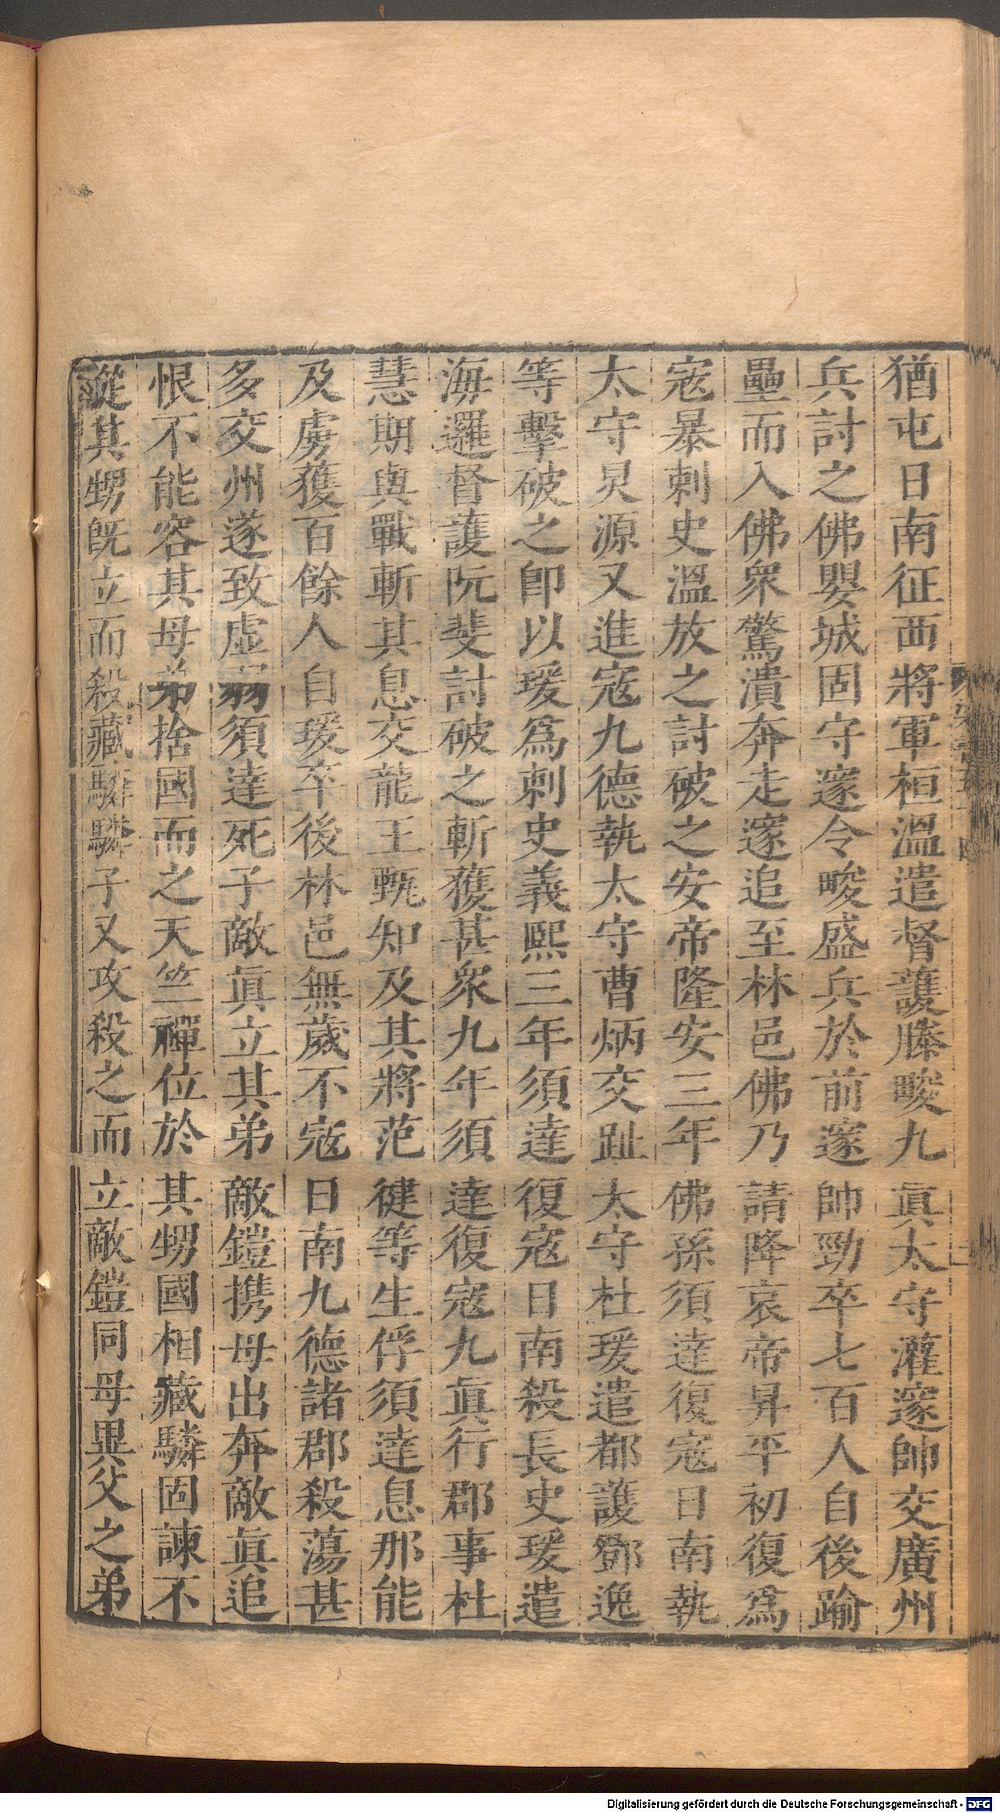 猶屯日南征西將軍桓溫遣督護滕畯九眞太守灌邃帥交廣州
兵討之佛嬰城固守邃令畯盛兵於前邃帥勁卒七百人自後踰
壘而入佛衆驚潰奔走邃追至林邑佛乃請降哀帝昇平初復爲
寇暴刺史溫放之討破之安帝隆安三年佛孫須達復寇日南執
太守炅源又進寇九德執太守曹炳交趾太守杜瑗遣都護鄧逸
等擊破之卽以瑗爲刺史義熙三年須達復寇日南殺長史瑗遣
海邏督護阮斐討破之斬獲甚衆九年須達復寇九眞行郡事杜
慧期與戰斬其息交龍王甄知及其將范健等生俘須達息那能
及虜獲百餘人自瑗卒後林邑無歲不寇日南九德諸郡殺蕩甚
多交州遂致虛弱須達死子敵眞立其弟敵鎧携母出奔敵眞追
恨不能容其母弟捨國而之天竺禪位於其甥國相藏驎固諫不
從其甥旣立而殺藏驎驎子又攻殺之而立敵鎧同母異父之弟
Digitalisierung gefördert durch die Deutsche Forschungsgemeinschaft - DFG